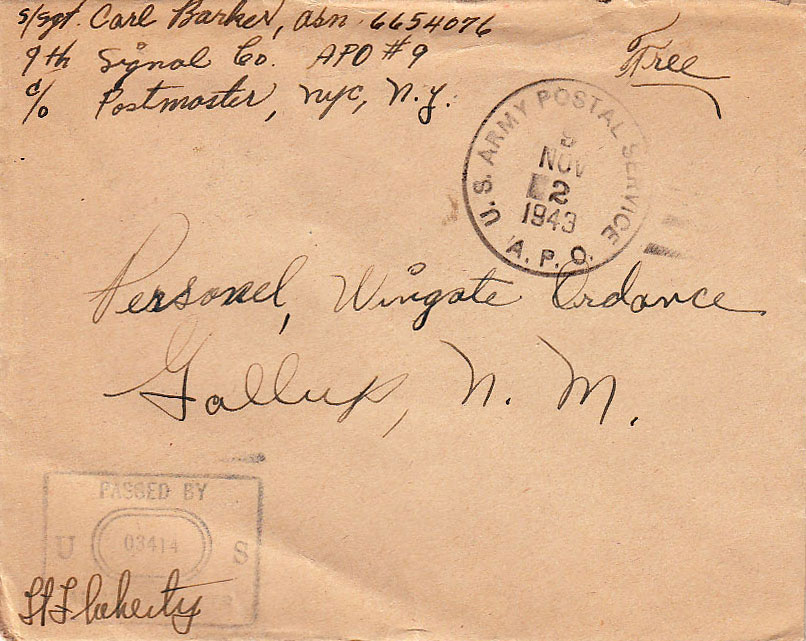 S/Sgt. Carl Barker, asn. 6654076
9th Signal Co. APO #9
c/o Postmaster, NYC, N.Y.
Free
U.S. ARMY POSTAL SERVICE
NOV
2
1943
A.P.O.
Personel, Wingate Ordance
Gallup, N. M.
PASSED BY
U 03414 S
Lt Flaherty